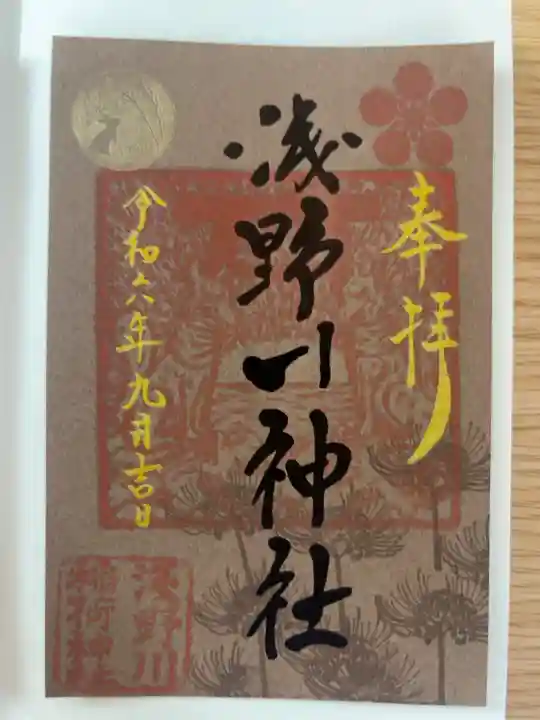 奉拝
浅野川神社
令和六年九月吉日
浅野川
稲荷神社